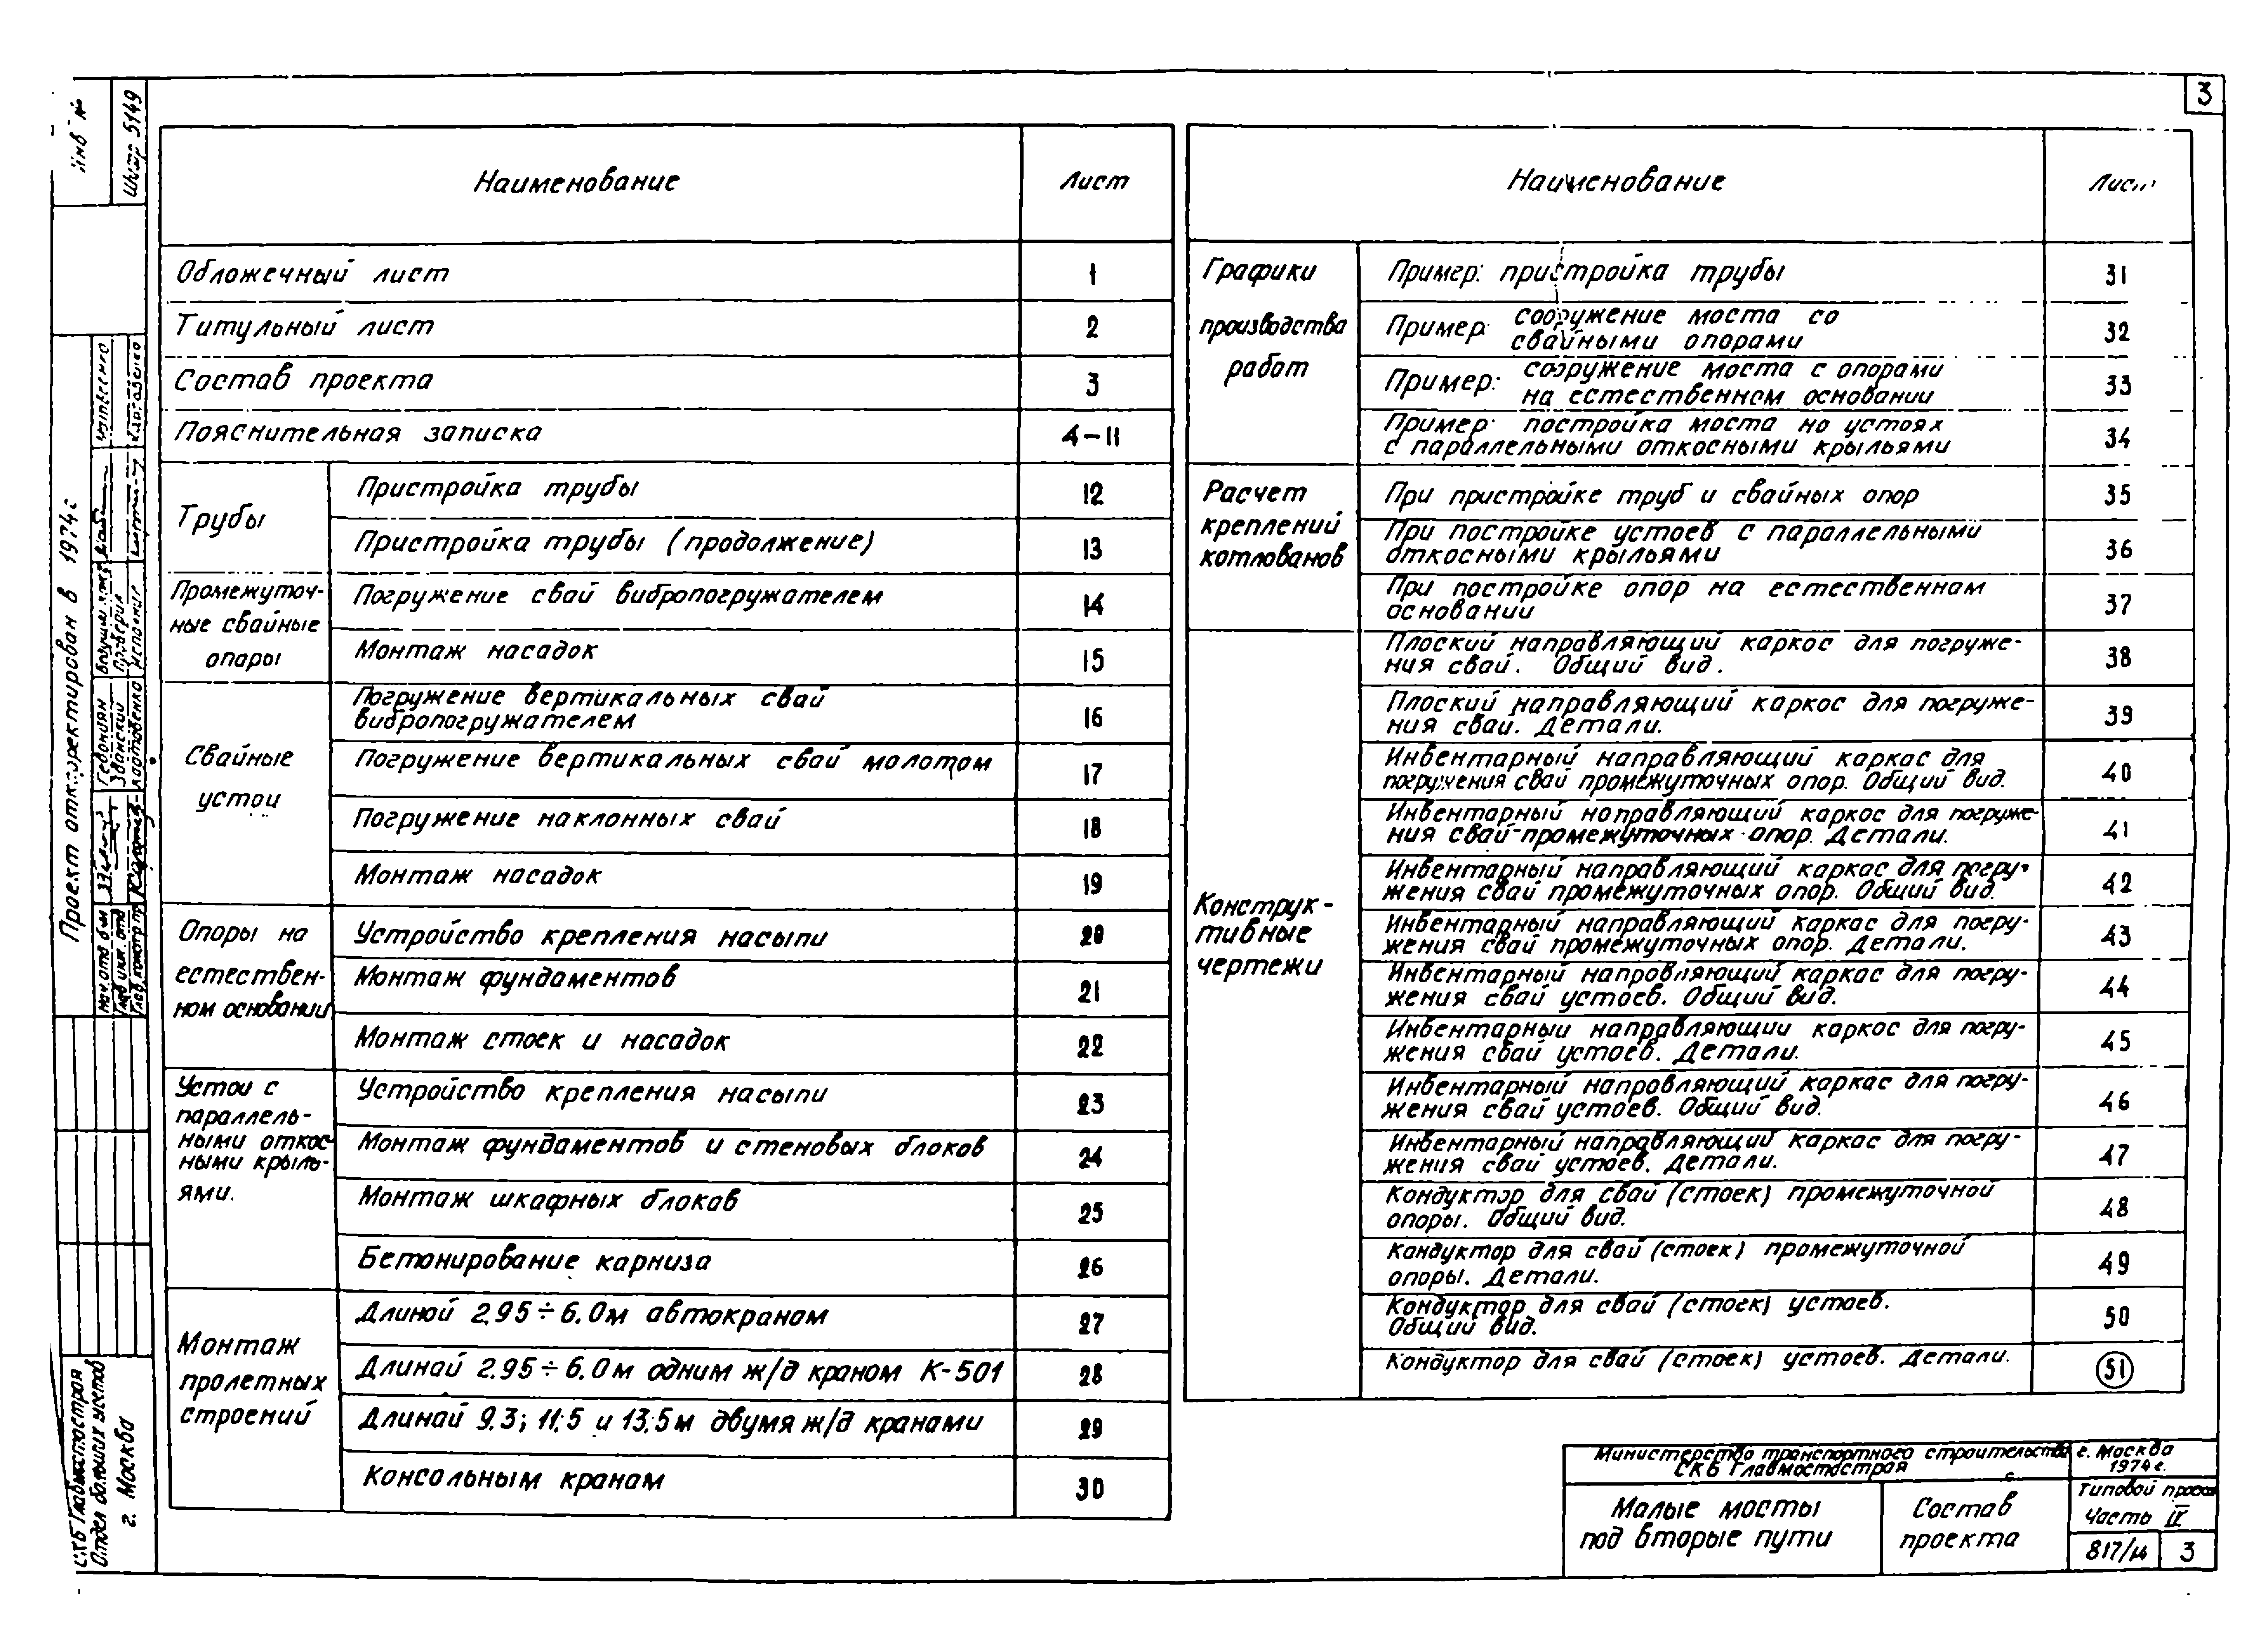 3
Наименование Лист
Обложечный лист 1
Титульный лист 2
Состав проекта 3
Пояснительная записка 4-11
Трубы
Пристройка трубы 12
Пристройка трубы (продолжение) 13
Промежуточ-
ные свайные
опоры
Погружение свай вибропогружателем 14
Монтаж насадок 15
Свайные
устои
Погружение вертикальных свай
вибропогружателем 16
Погружение вертикальных свай молотом 17
Погружение наклонных свай 18
Монтаж насадок 19
Опоры на
естествен-
ном основании
Устройство крепления насыпи 20
Монтаж фундаментов 21
Монтаж стоек и насадок 22
Устои с
параллель-
ными откос-
ными крыль-
ями.
Устройство крепления насыпи 23
Монтаж фундаментов и стеновых блоков 24
Монтаж шкафных блоков 25
Бетонирование карниза 26
Монтаж
пролетных
строений
Длиной 2,95÷6,0м автокраном 27
Длиной 2,95÷6,0м одним ж/д краном К-501 28
Длиной 9,3; 11,5 и 13,5м двумя ж/д кранами 29
Консольным краном 30
Наименование Лист
Графики
производства
работ
Пример: пристройка трубы 31
Пример: сооружение моста со
свайными опорами 32
Пример: сооружение моста с опорами
на естественном основании 33
Пример: постройка моста на устоях
с параллельными откосными крыльями 34
Расчет
креплений
котлованов
При пристройке труб и свайных опор 35
При постройке устоев с параллельными
откосными крыльями 36
При постройке опор на естественном
основании 37
Конструк-
тивные
чертежи
Плоский направляющий каркас для погруже-
ния свай. Общий вид. 38
Плоский направляющий каркас для погруже-
ния свай. Детали. 39
Инвентарный направляющий каркас для
погружения свай промежуточных опор. Общий вид. 40
Инвентарный направляющий каркас для погруже-
ния свай промежуточных опор. Детали. 41
Инвентарный направляющий каркас для погру-
жения свай промежуточных опор. Общий вид. 42
Инвентарный направляющий каркас для погру-
жения свай промежуточных опор. Детали. 43
Инвентарный направляющий каркас для погру-
жения свай устоев. Общий вид. 44
Инвентарный направляющий каркас для погру-
жения свай устоев. Детали. 45
Инвентарный направляющий каркас для погру-
жения свай устоев. Общий вид. 46
Инвентарный направляющий каркас для погру-
жения свай устоев. Детали. 47
Кондуктор для свай (стоек) промежуточной
опоры. Общий вид. 48
Кондуктор для свай (стоек) промежуточной
опоры. Детали. 49
Кондуктор для свай (стоек) устоев.
Общий вид. 50
Кондуктор для свай (стоек) устоев. Детали. 51
Министерство транспортного строительства
СКБ Главмостострая
г. Москва
1974г.
Малые мосты
под вторые пути
Состав
проекта
Типовой проект
Часть IX
817/14 3
Инв №
Шифр 5149
Проект откорректирован в 1974г
Нач. отд б.м Гевондян
Глав инж. отд
Глав. констр. пр. Картавенко
Проверил
Исполнил
СКБ Главмостостроя
Отдел больших мостов
г. Москва